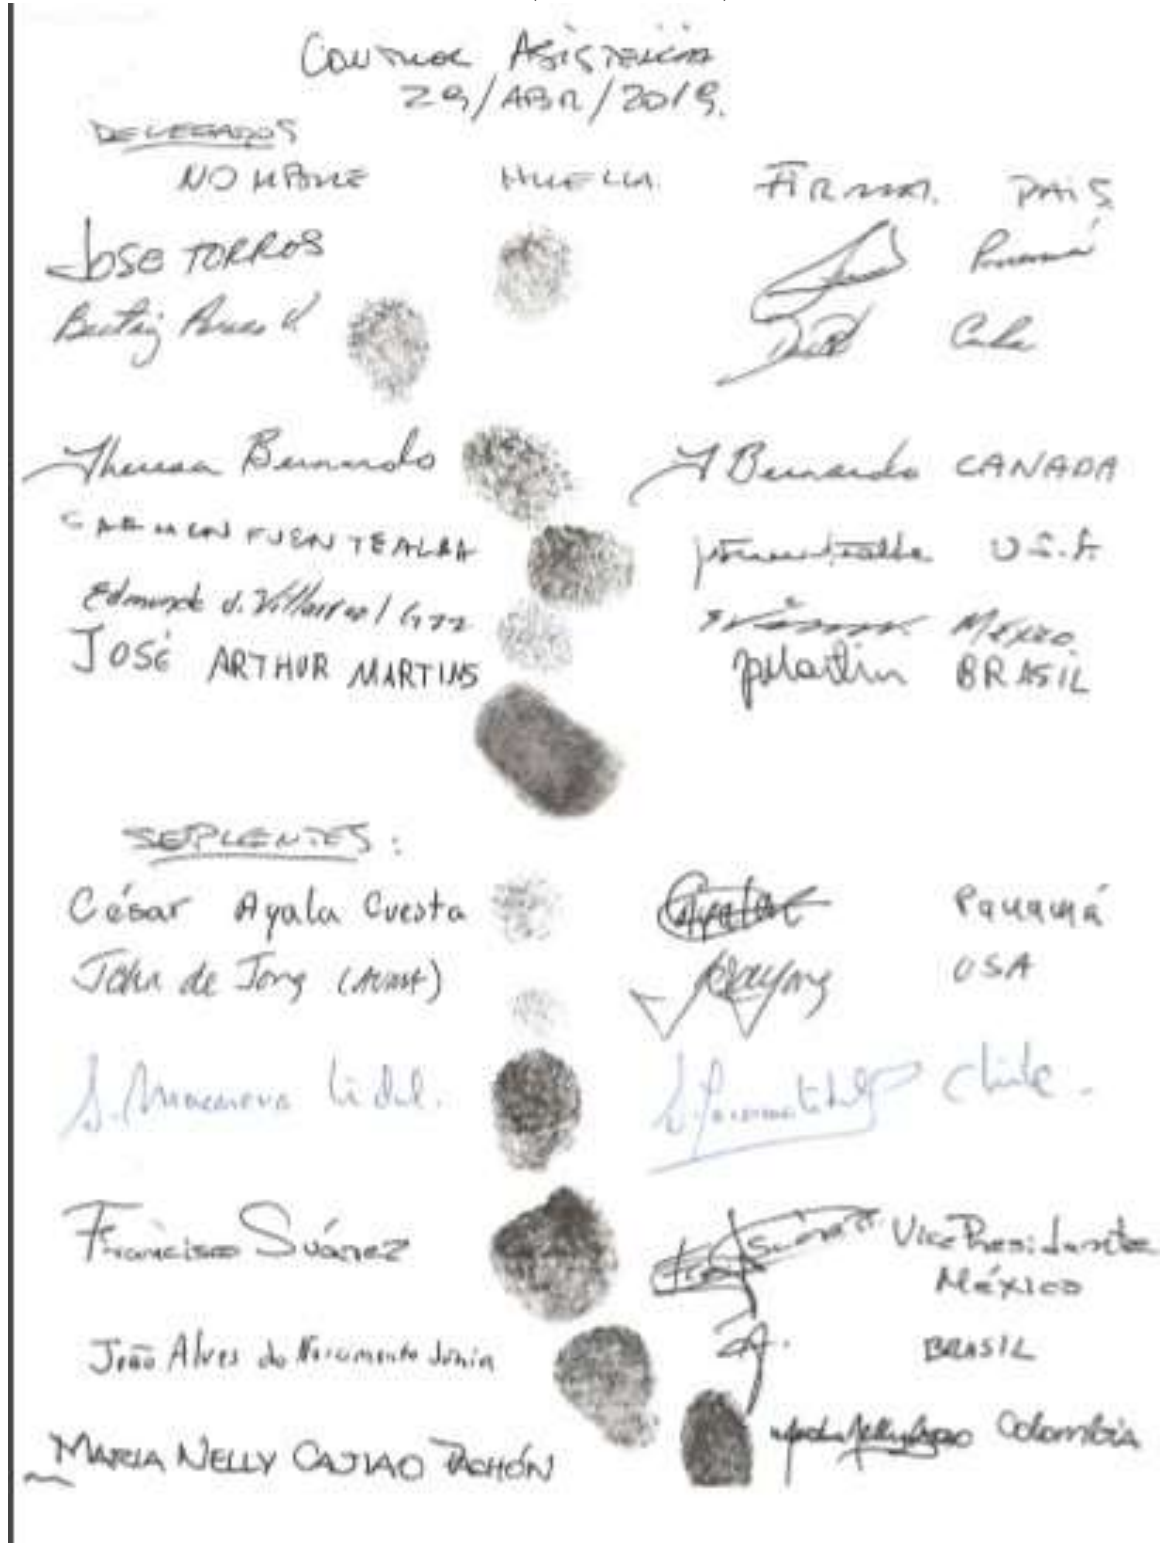 CONTROL ASISTENCIA
29/ABR/2019.
DELEGADOS
NOMBRE HUELLA. FIRMA. PAIS
JOSE TORRES Panamá
Beatriz Cuba
Theresa Bernardo T Bernardo CANADA
CARMEN FUENTEALBA U.S.A
Edmundo J. Villarreal Gzz MÉXICO
JOSÉ ARTHUR MARTINS BRASIL
SUPLENTES:
César Ayala Cuesta Ayala Panamá
John de Jong USA
Chile.
Francisco Suárez Suárez Vice Presidente
México
João Alves do Nascimento Júnior BRASIL
MARIA NELLY CAJIAO PACHÓN Colombia